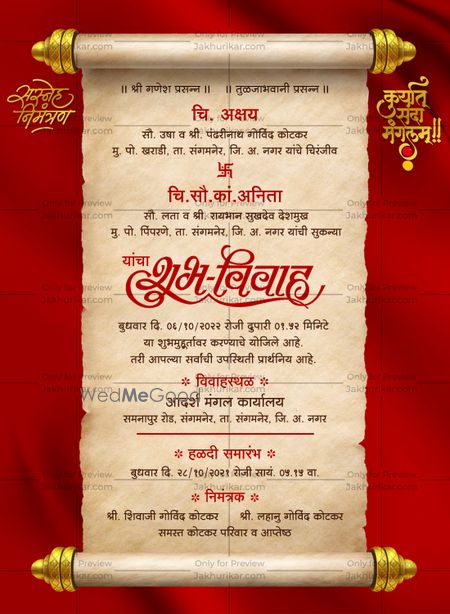 सस्नेह
निमंत्रण
कुर्यात
सदा
मंगलम्!!
॥ श्री गणेश प्रसन्न ॥ ॥ तुळजाभवानी प्रसन्न ॥
चि. अक्षय
सौ. उषा व श्री. पंढरीनाथ गोविंद कोटकर
मु. पो. खराडी, ता. संगमनेर, जि. अ. नगर यांचे चिरंजीव
卐
चि.सौ.कां.अनिता
सौ. लता व श्री. रायभान सुखदेव देशमुख
मु. पो. पिंपरणे, ता. संगमनेर, जि. अ. नगर यांची सुकन्या
यांचा
शुभ-विवाह
बुधवार दि. ०६/१०/२०२२ रोजी दुपारी ०१.५२ मिनिटे
या शुभमुहूर्तावर करण्याचे योजिले आहे.
तरी आपल्या सर्वांची उपस्थिती प्रार्थनिय आहे.
विवाहस्थळ
आदर्श मंगल कार्यालय
समनापुर रोड, संगमनेर, ता. संगमनेर, जि. अ. नगर
हळदी समारंभ
बुधवार दि. २८/१०/२०२१ रोजी सायं. ०७.१५ वा.
निमंत्रक
श्री. शिवाजी गोविंद कोटकर श्री. लहानु गोविंद कोटकर
समस्त कोटकर परिवार व आप्तेष्ठ
WedMeGood
Only for Preview
Jakhurikar.com